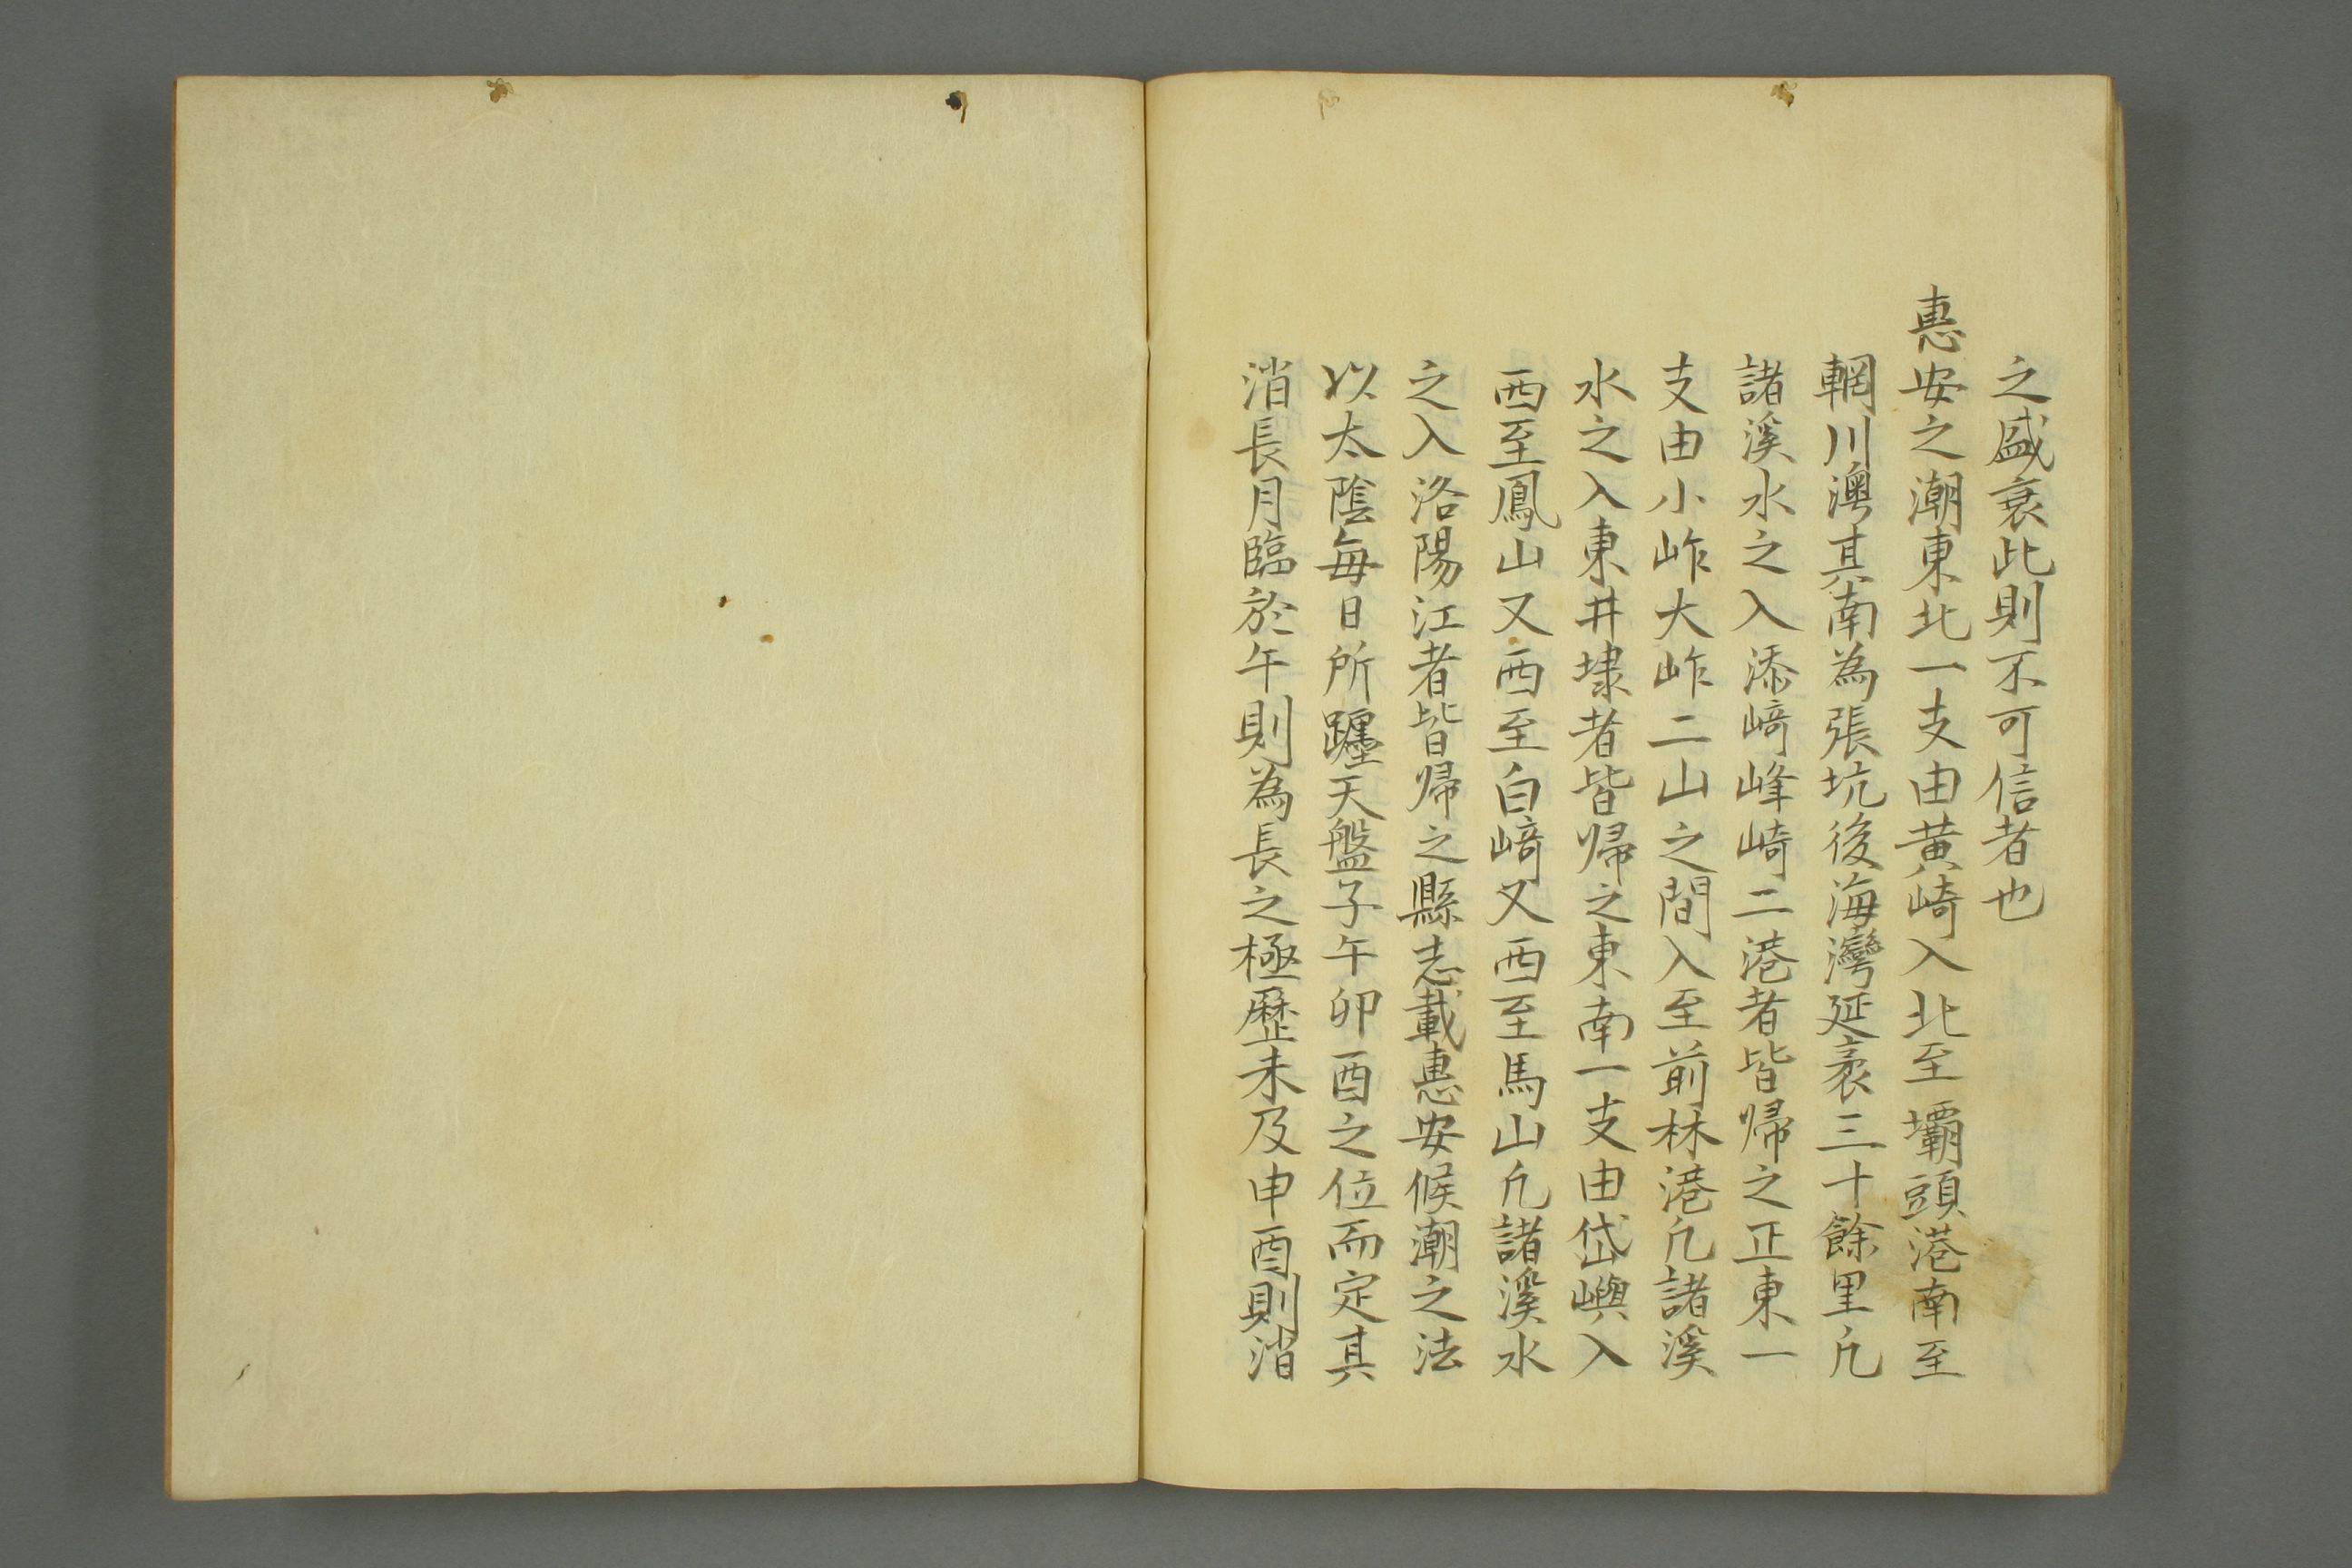 之盛衰此則不可信者也
惠安之潮東北一支由黃崎入北至壩頭港南至
輞川澳其南為張坑後海灣延袤三十餘里凢
諸溪水之入添﨑峰崎二港者皆歸之正東一
支由小岞大岞二山之間入至前林港凢諸溪
水之入東井埭者皆歸之東南一支由岱嶼入
西至鳳山又西至白﨑又西至馬山凢諸溪水
之入洛陽江者皆歸之縣志載惠安候潮之法
以太陰每日所躔天盤子午卯酉之位而定其
消長月臨於午則為長之極歷未及申酉則消